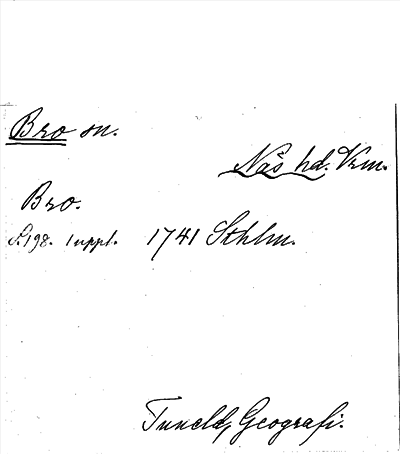 Bro sn.
Näs hd. Vrm.
Bro.
S. 198. 1 uppl. 1741 Sthlm.
Tunelds Geografi.